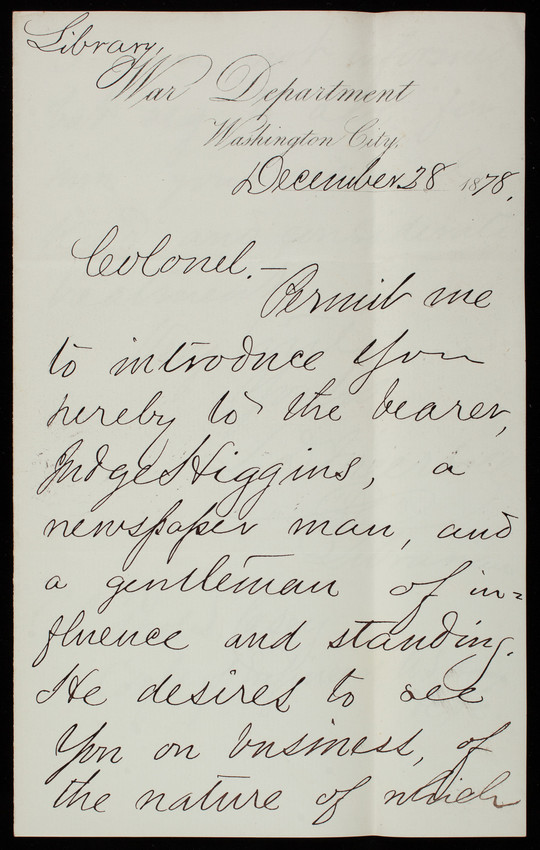 Library,
War Department
Washington City,
December 28 1878.
Colonel.—
Permit me
to introduce you
hereby to the bearer,
Judge Higgins, a
newspaper man, and
a gentleman of in=
fluence and standing.
He desires to see
you on business, of
the nature of which